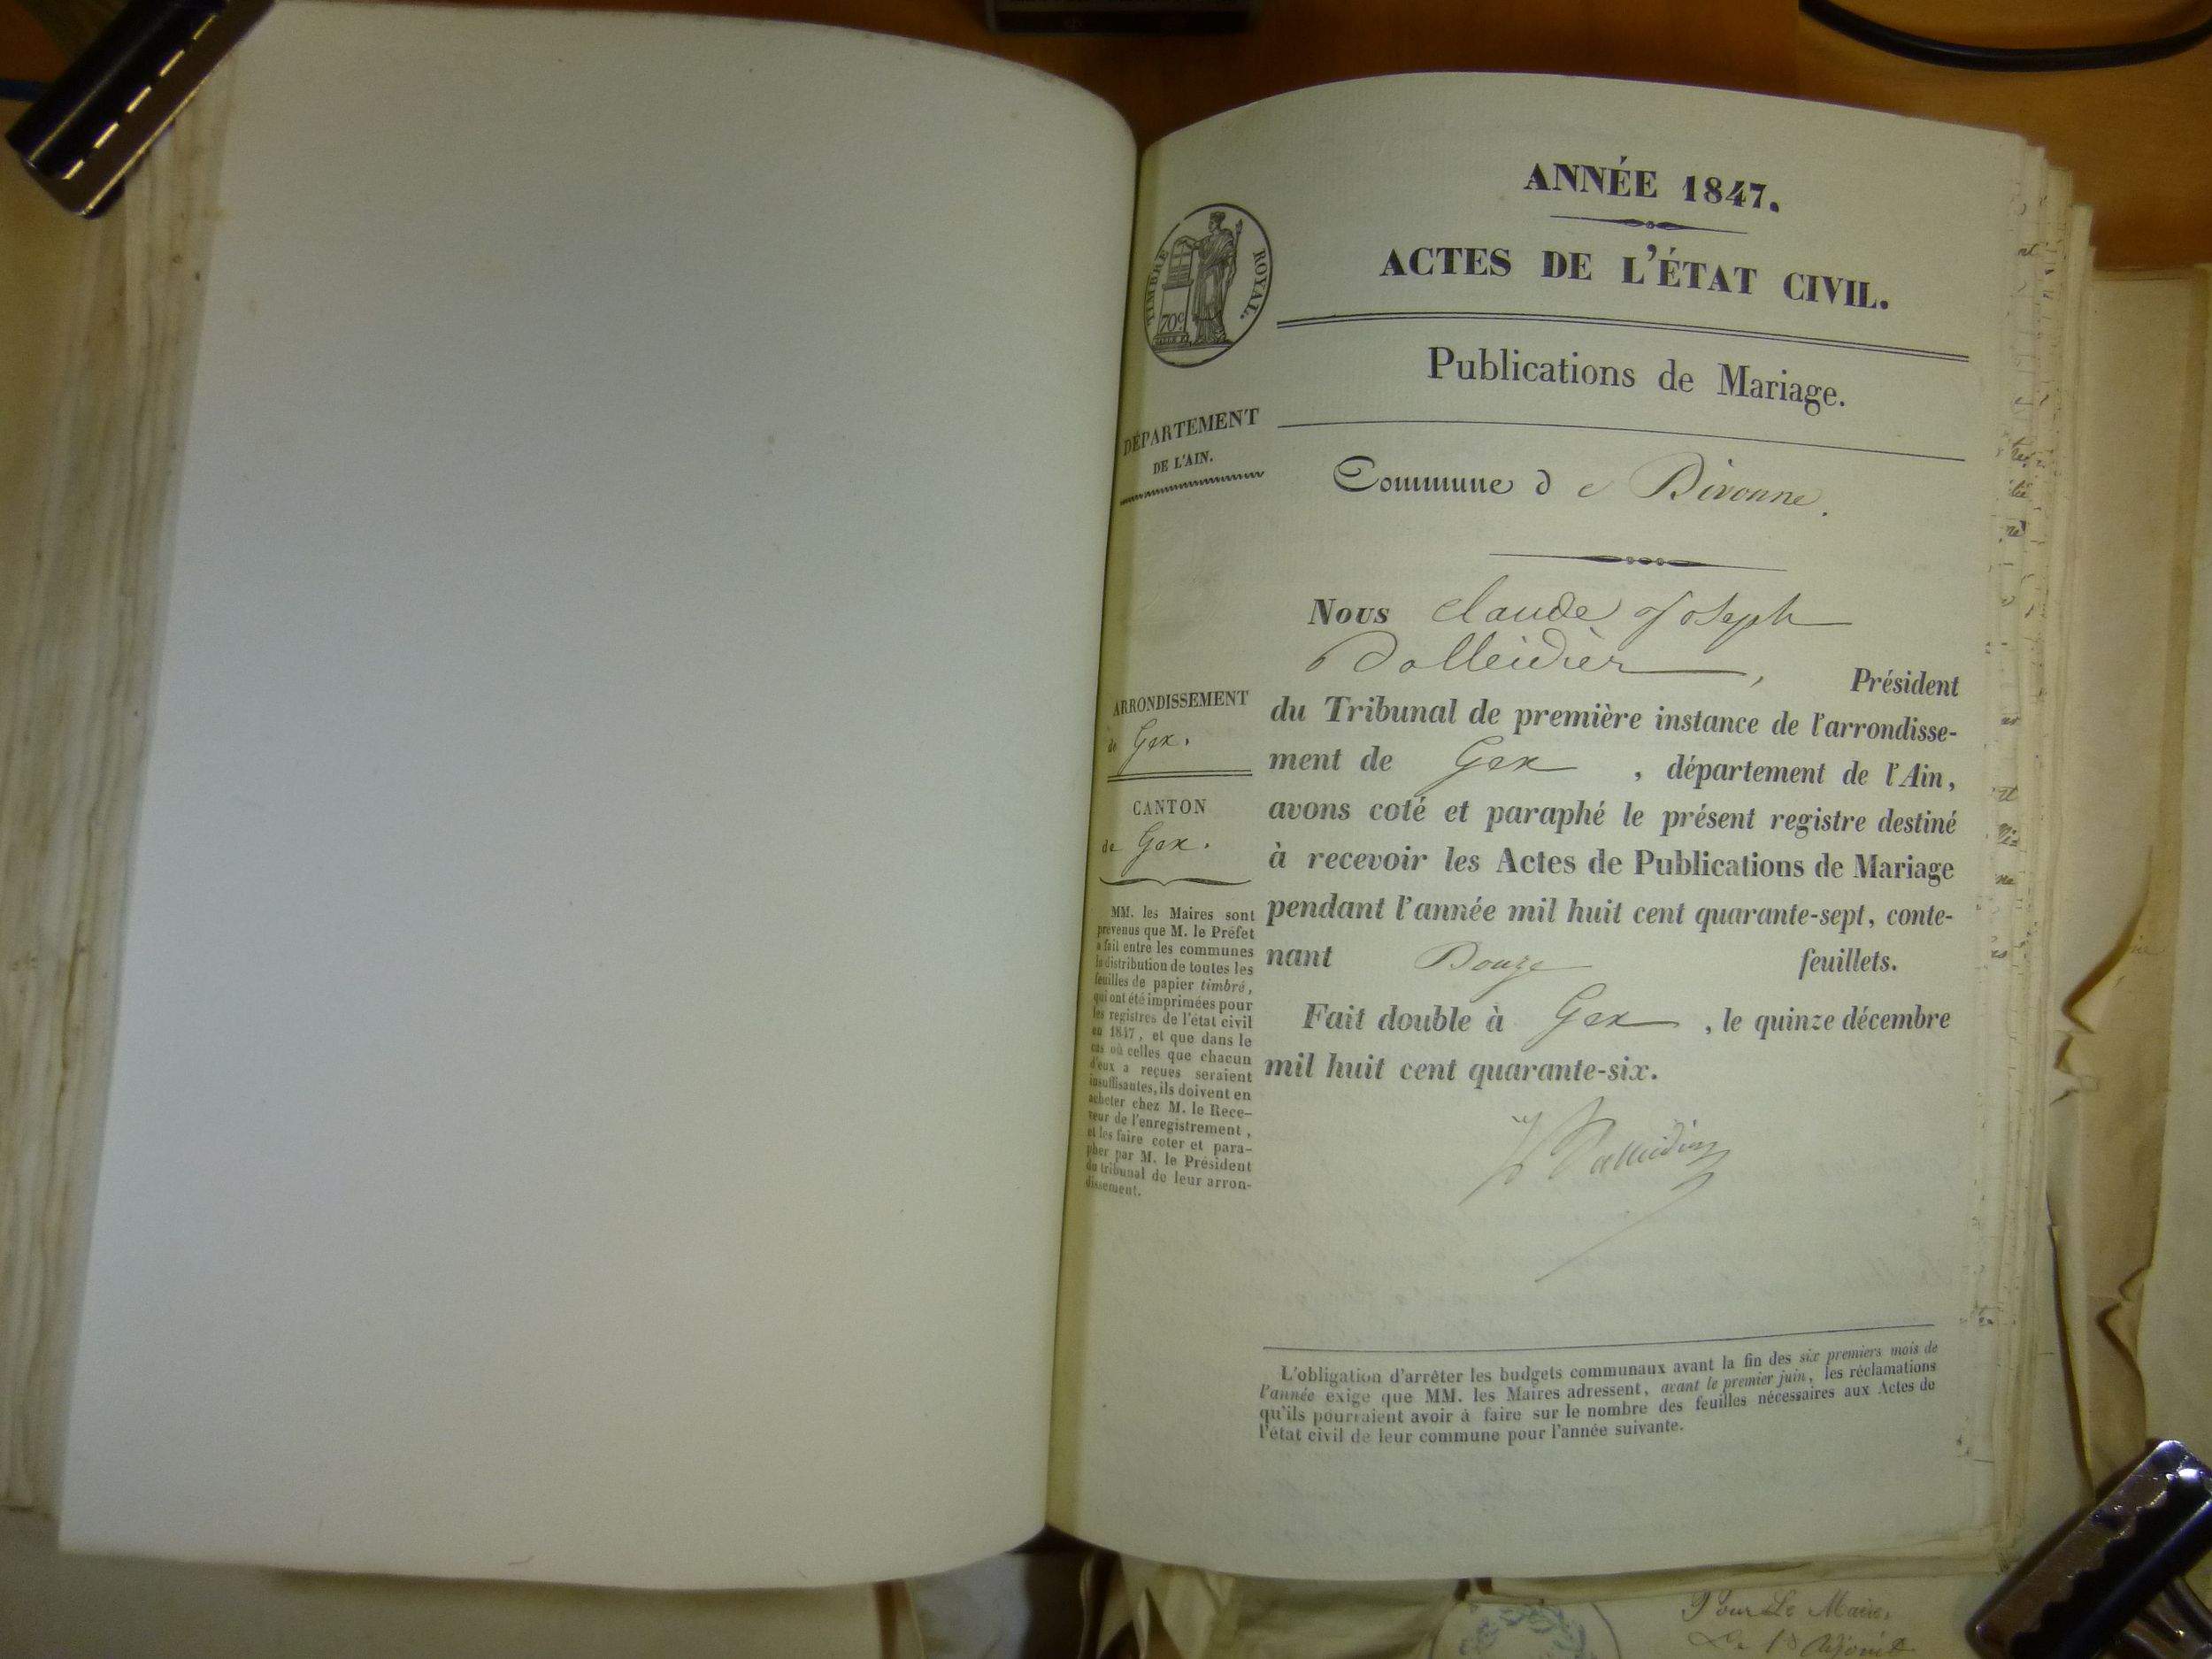 ANNÉE 1847.
ACTES DE L'ÉTAT CIVIL.
TIMBRE ROYAL.
70c
Publications de Mariage.
DÉPARTEMENT
DE L'AIN.
Commune de Divonne.
Nous Claude Joseph
Dalleidier, Président
du Tribunal de première instance de l'arrondisse-
ment de Gex, département de l'Ain,
avons coté et paraphé le présent registre destiné
à recevoir les Actes de Publications de Mariage
pendant l'année mil huit cent quarante-sept, conte-
nant Douze feuillets.
Fait double à Gex, le quinze décembre
mil huit cent quarante-six.
ARRONDISSEMENT
de Gex.
CANTON
de Gex.
MM. les Maires sont
prévenus que M. le Préfet
a fait entre les communes
la distribution de toutes les
feuilles de papier timbré,
qui ont été imprimées pour
les registres de l'état civil
en 1847, et que dans le
cas où celles que chacun
d'eux a reçues seraient
insuffisantes, ils doivent en
acheter chez M. le Rece-
veur de l'enregistrement,
et les faire coter et para-
pher par M. le Président
du tribunal de leur arron-
dissement.
L'obligation d'arrêter les budgets communaux avant la fin des six premiers mois de
l'année exige que MM. les Maires adressent, avant le premier juin, les réclamations
qu'ils pourraient avoir à faire sur le nombre des feuilles nécessaires aux Actes de
l'état civil de leur commune pour l'année suivante.
Pour Le Maire,